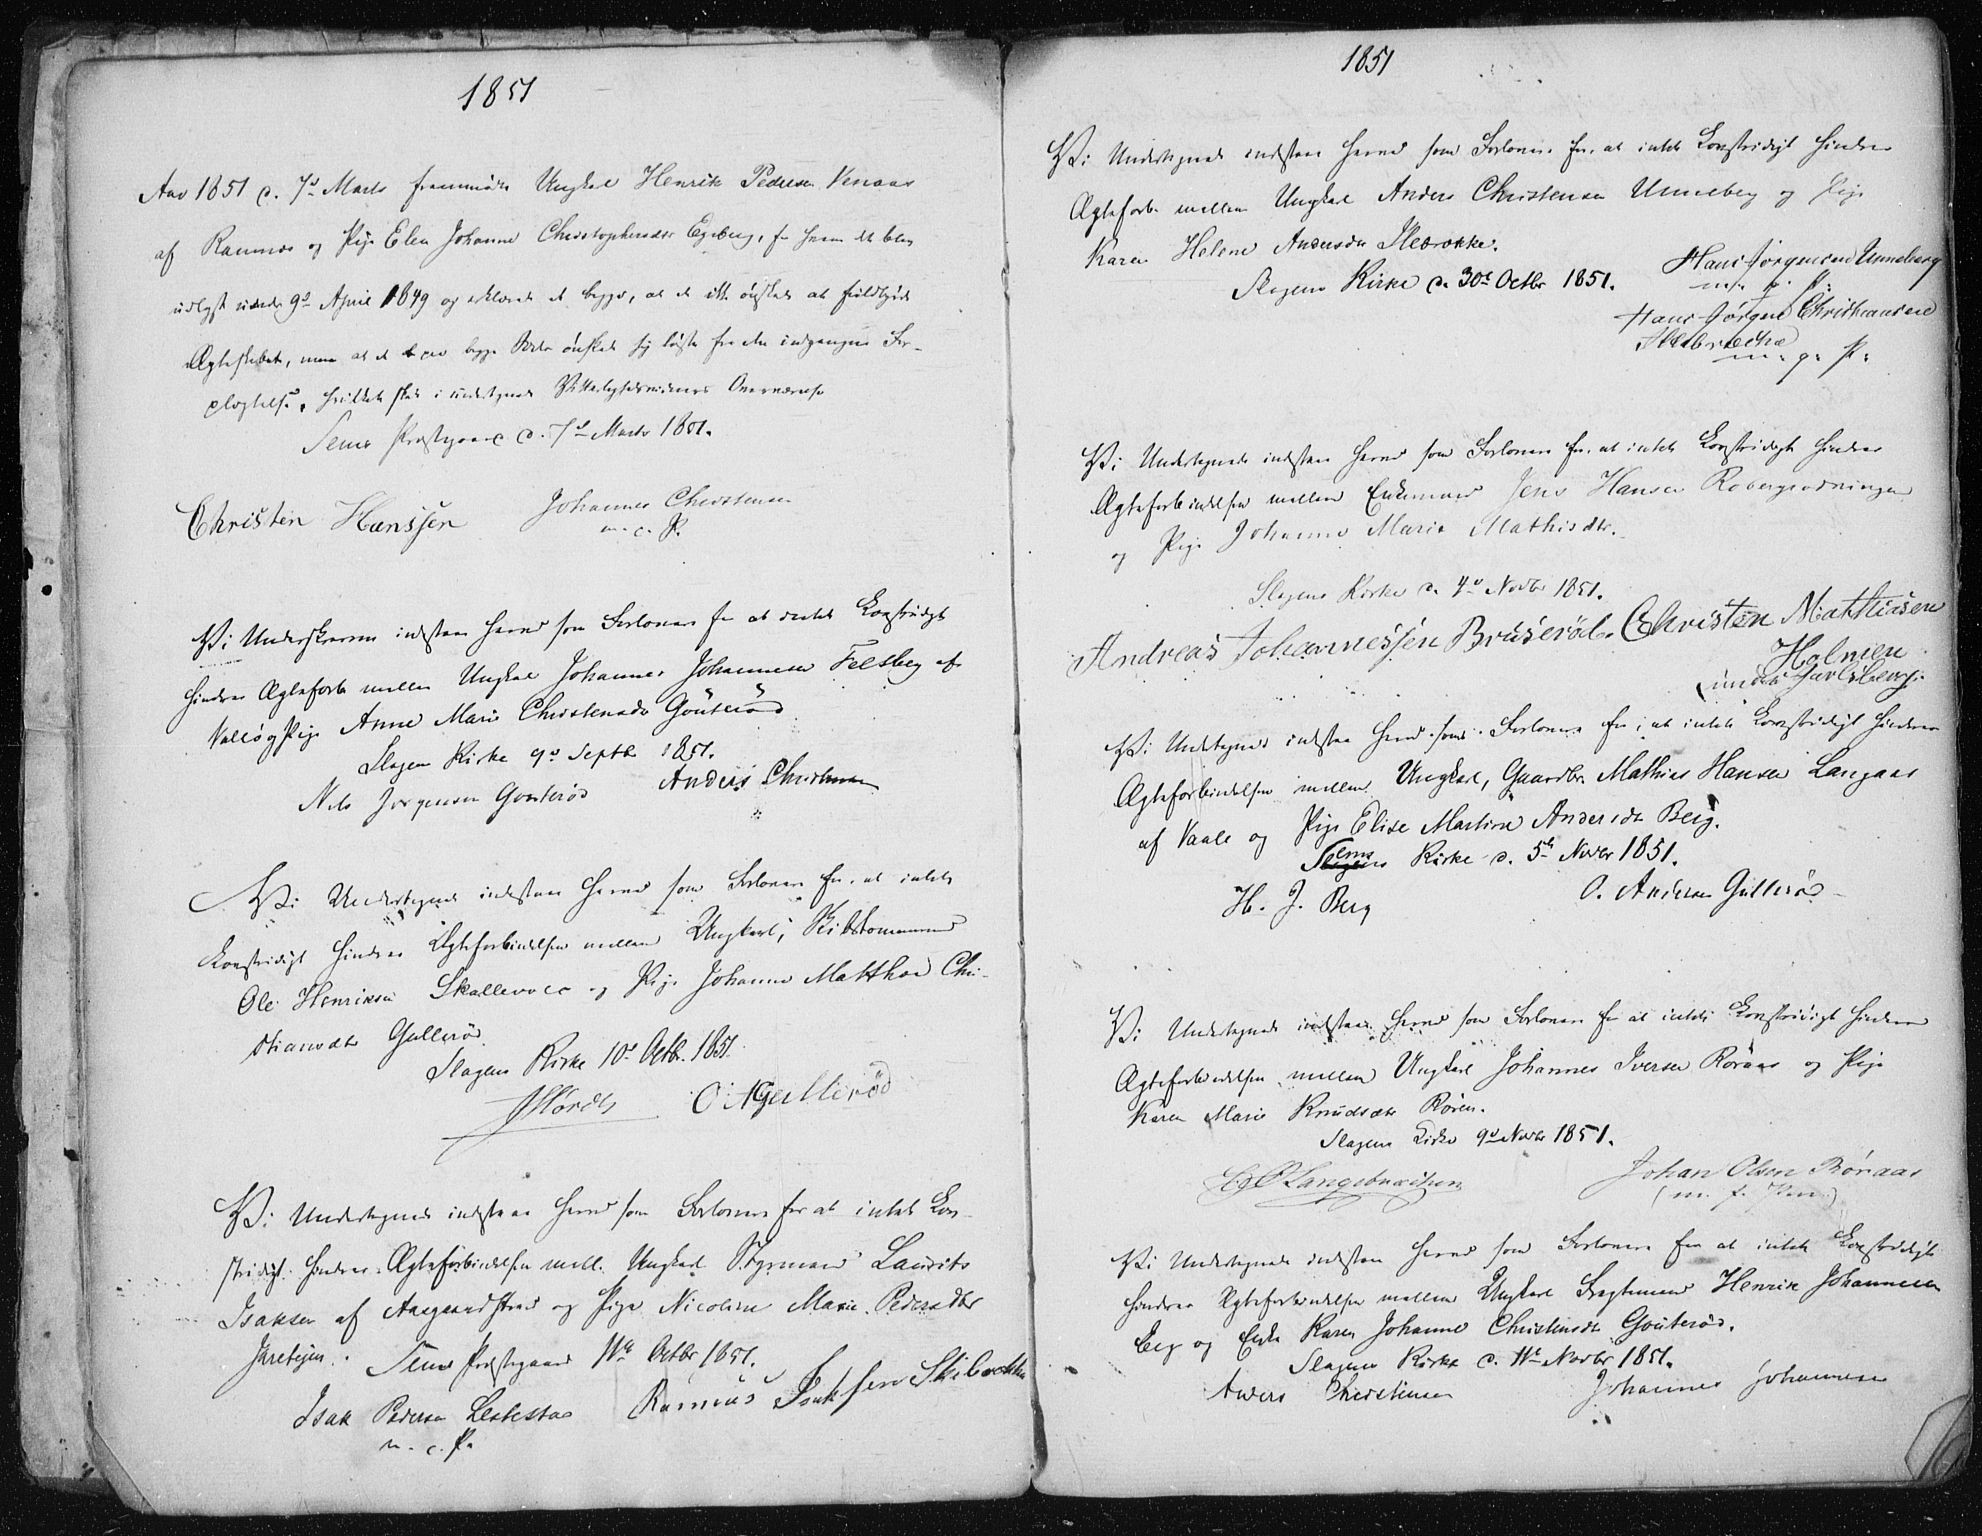 1851
Aar 1851 d. 7de Marts fremmødte Ungkarl Henrik Pedersen Venaas
af Ramnæs og Pige Elen Johanne Christophersdtr Egeberg, for hvem der blev
udlyst 9de April 1849 og erklærede de begge, at de ikke önskede at fuldbyrde
Ægteskabet, men at de begge Parter önskede sig löste fra den indgangne For-
pligtelse, hvilket skete i undertegnede Vitterlighedsvidners Overværelse
Sems Præstegaard d. 7de Marts 1851.
Christen Hanssen Johannes Christensen
m. c. P.
Vi Underskrevne indestaae herved som Forlovere for at intet Lovstridigt
hindrer Ægteforb mellem Ungkarl Johannes Johannesen Felsberg af
Valløe og Pige Anne Marie Christensdtr Gouterød
Slagens Kirke 9de Septbr 1851.
Nils Jørgensen Gouterød Anders Christensen
Vi Undertegnede indestaae herved som Forlovere for, at intet
Lovstridigt hindrer Ægteforbindelsen mellem Ungkarl, Skibstømmermand
Ole Henriksen Skallevold og Pige Johanne Matthea Chri-
stiansdtr Gullerød
Slagens Kirke 10de Octbr. 1851.
O A Gullerød
Vi Undertegnede indestaae herved som Forlovere for at intet Lov-
stridigt hindrer Ægteforbindelsen mell. Ungkarl Styrmand Laurits
Isaksen af Aasgaardstrand og Pige Nicoline Marie Pedersdtr
Jaretejen. Sems Præstegaard 11te Octbr 1851.
Isak Pedersen Rasmus Isaksen
m. c. P.
1851
Vi Undertegnede indestaae herved som Forlovere for, at intet Lovstridigt hindrer
Ægteforb. mellem Ungkarl Anders Christensen Unneberg og Pige
Karen Helene Andersdtr Ilebrække.
Slagens Kirke d. 30te Octbr 1851. Hans Jørgensen Unneberg
m. p. P.
Hans Jørgen Christiansen
Ilebræche
m. p. P.
Vi Undertegnede indestaae herved som Forlovere for, at intet Lovstridigt hindrer
Ægteforbindelsen mellem Enkemand Jens Hansen Robergrødningen
og Pige Johanne Marie Mathisdtr.
Slagens Kirke d. 4de Novbr 1851.
Andreas Johannessen Bruserød. Christen Matthiasen
Holmen
under Jarlsberg.
Vi Undertegnede indestaae herved som Forlovere for, at intet Lovstridigt hindrer
Ægteforbindelsen mellem Ungkarl, Gaardbr. Mathias Hansen Langaas
af Vaale og Pige Elise Martine Andersdtr Berg.
Sems Kirke d. 5te Novbr 1851.
H. J. Berg O. Andersen Gullerød
Vi Undertegnede indestaae herved som Forlovere for at intet Lovstridigt hindrer
Ægteforbindelsen mellem Ungkarl Johannes Iversen Röraas og Pige
Karen Marie Knudsdtr Røren.
Slagens Kirke 9de Novbr 1851.
Johan Olsen Røraas
(m. f. Pen.)
Vi Undertegnede indestaae herved som Forlovere for at intet Lovstridigt
hindrer Ægteforbindelsen mellem Ungkarl Henrik Johannesen
Eeg og Enke Karen Johanne Christensdtr Gouterød.
Slagens Kirke d. 11te Novbr 1851.
Anders Christensen Johannes Johannesen